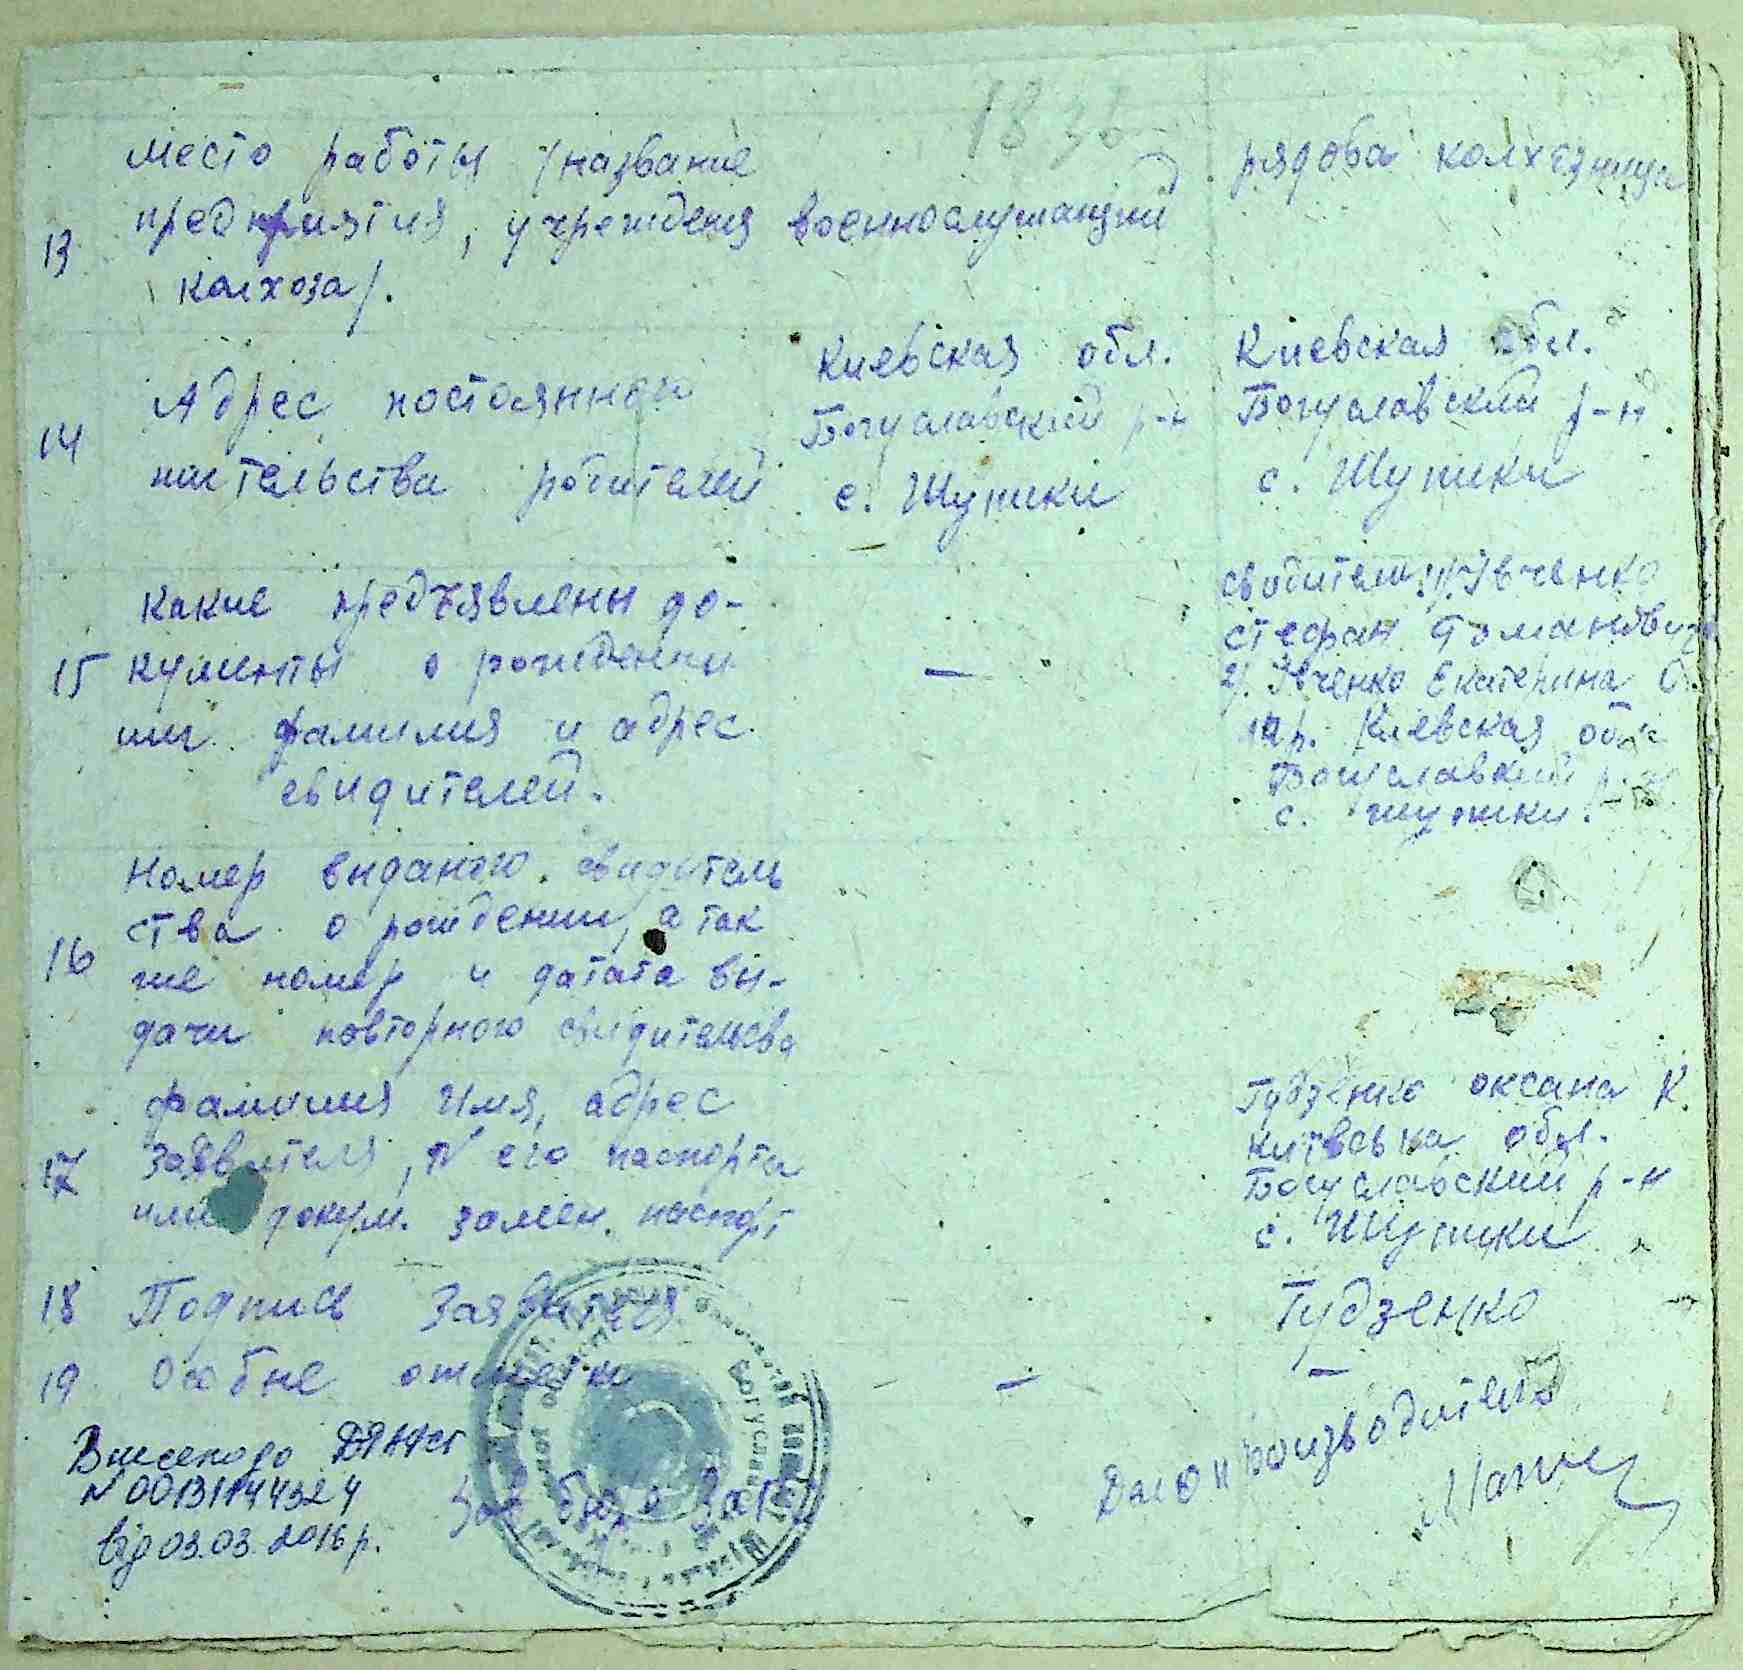 183б
13
Место работы (название
предприятия, учреждения
колхоза).
военнослужащий
рядова колхозница
14
Адрес постоянного
жительства родителей
Киевская обл.
Богуславский р-н
с. Шупики
Киевская обл.
Богуславский р-н
с. Шупики
15
Какие предъявлены до-
кументы о рождении
или фамилия и адрес
свидителей.
—
свидители: 1) Ивченко
Стефан
2). Ивченко Екатерина
пр. Киевская обл
Богуславский р-н
с. Шупики.
16
Номер выданого свидитель
ства о рождении, а так
же номер и датата вы-
дачи повторного свидительсва
17
Фамилия Имя, адрес
заявителя, № его паспорта
или докум. замен. паспорт
Гудзенко Оксана К.
Київська обл.
Богуславский р-н
с. Шупики
18
Подпись Заявителя
Гудзенко
19
Особые отметки
—
—
Внесено до ДРАЦСГ
№ 00131144324
від 03.03.2016р.
Зав бюро Загс
Богуслав
Делопроизводитель